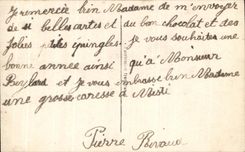 Je remercie bien Madame de m'envoyer
de si belles cartes et du bon chocolat et des
jolies petites épingles je vous souhaites une
bonne année ainsi qu'à Monsieur
et je vous embrasse bien Madame
une grosse caresse à
Pierre